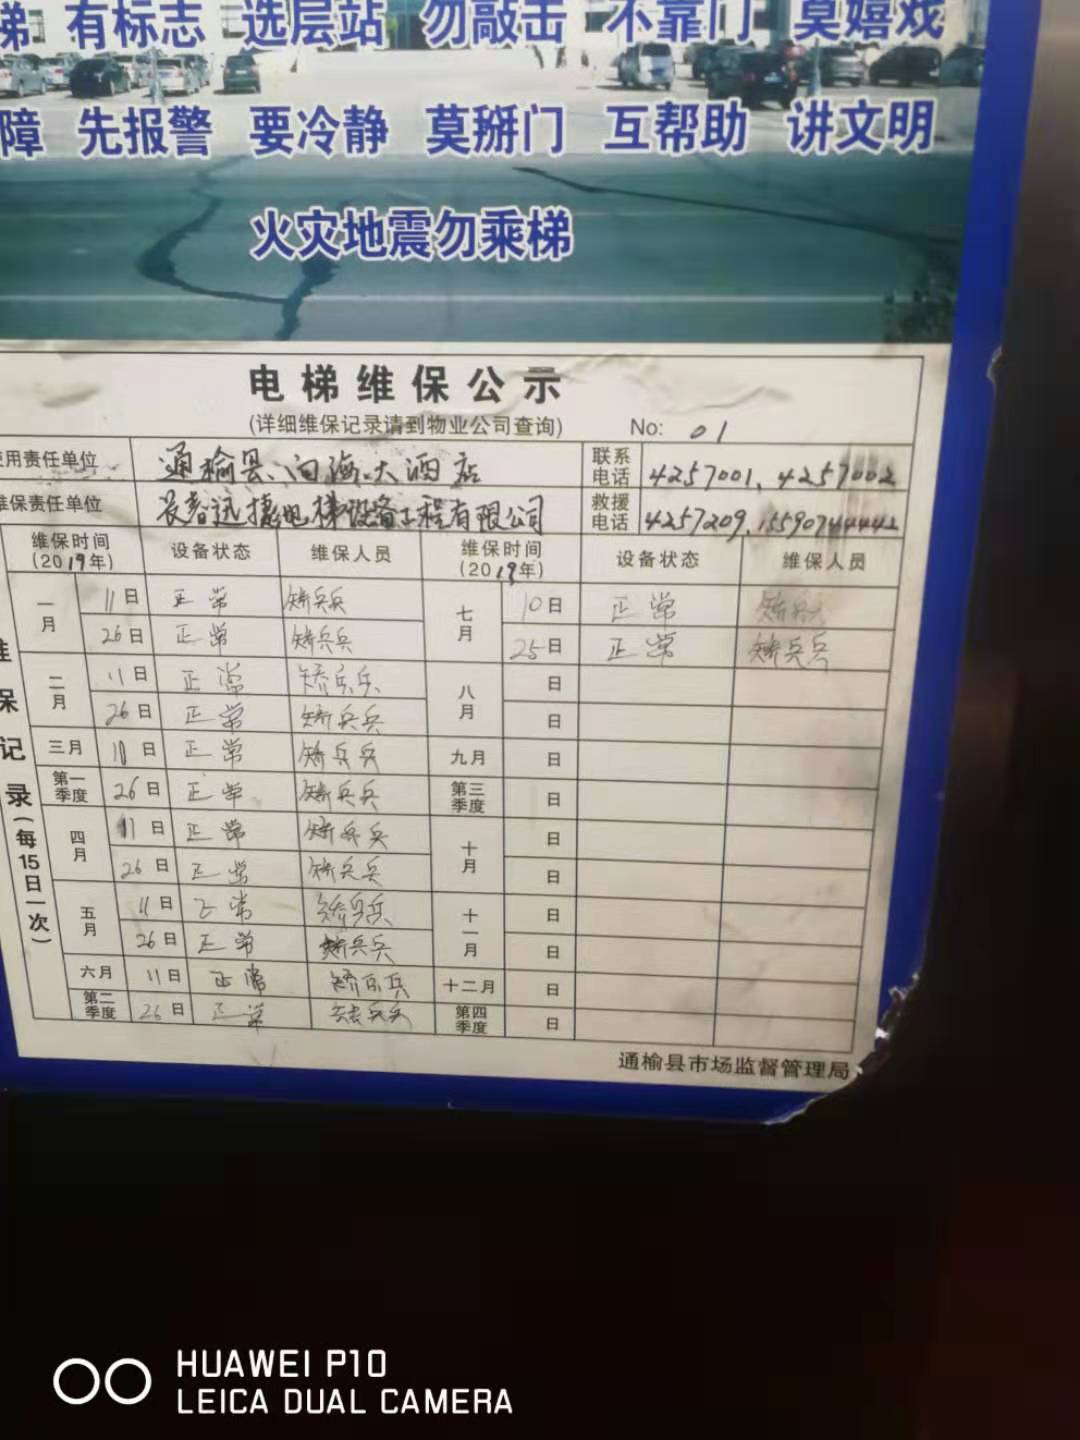 梯 有标志 选层站 勿敲击 不靠门 莫嬉戏
障 先报警 要冷静 莫掰门 互帮助 讲文明
火灾地震勿乘梯
电梯维保公示
(详细维保记录请到物业公司查询) No: 01
使用责任单位 通榆县向海大酒店 联系电话 4257001、4257002
维保责任单位 长春远捷电梯设备工程有限公司 救援电话 4257209、15590744442
维保时间(2019年) 设备状态 维保人员 维保时间(2019年) 设备状态 维保人员
维保记录(每15日一次)
一月 11日 正常 矫兵兵 七月 10日 正常 矫兵兵
26日 正常 矫兵兵 25日 正常 矫兵兵
二月 11日 正常 矫兵兵 八月 日
26日 正常 矫兵兵 日
三月 11日 正常 矫兵兵 九月 日
第一季度 26日 正常 矫兵兵 第三季度 日
四月 11日 正常 矫兵兵 十月 日
26日 正常 矫兵兵 日
五月 11日 正常 矫兵兵 十一月 日
26日 正常 矫兵兵 日
六月 11日 正常 矫兵兵 十二月 日
第二季度 26日 正常 矫兵兵 第四季度 日
通榆县市场监督管理局
HUAWEI P10
LEICA DUAL CAMERA